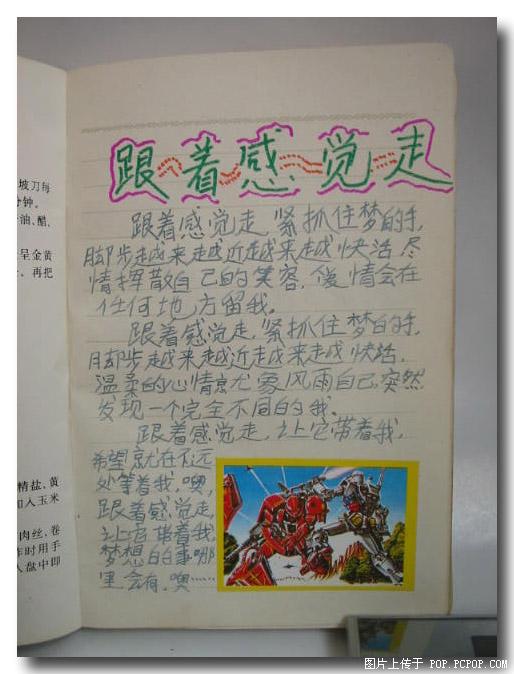 跟着感觉走
跟着感觉走,紧抓住梦的手,
脚步越来越近越来越快活,尽
情挥散自己的笑容,傻情会在
任何地方留我。
跟着感觉走,紧抓住梦的手,
脚步越来越近越来越快活,
温柔的心情就象风雨自己,突然
发现一个完全不同的我。
跟着感觉走,让它带着我,
希望就在不远
处等着我,噢,
跟着感觉走,
让它带着我,
梦想的事哪
里会有,噢
坡刀每
分钟。
油、醋、
呈金黄
再把
精盐、黄
加入玉米
肉丝,卷
炸时用手
入盘中即
图片上传于 POP.PCPOP.COM